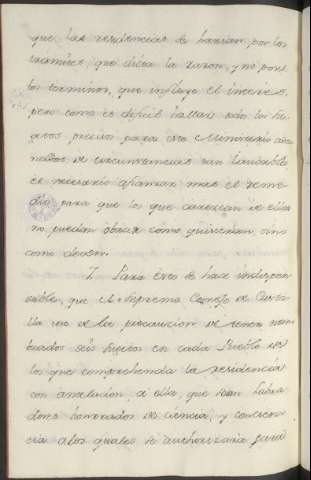 que las residencias se harian por los
tramites, que dicta la razon, y no por
los terminos, que influye el interes,
pero como es dificil hallar solo los Su-
getos precisos para este Ministerio ador-
nados de circunstancias tan laudables
es necesario afianzar mas el reme-
dio para que los que carezcan de ellas
no puedan obrar como quisieran, sino
como deven.
7. Para esto se hace indispen-
sable, que el Supremo Consejo de Casti-
lla use de la precaucion de tener nom-
brados seis sugetos en cada Pueblo de
los que comprehenda la residencia
con antelacion, a ella, que sean Labra-
dores honrados de ciencia, y concien-
cia a los quales se authorizaria para